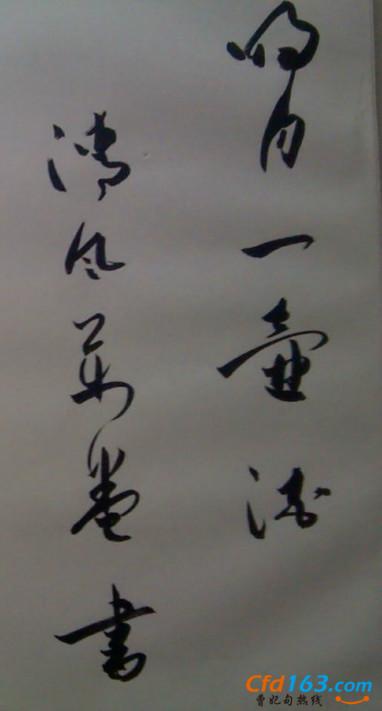 明月一壶酒
清风万卷书
Cfd163.com
曹妃甸热线